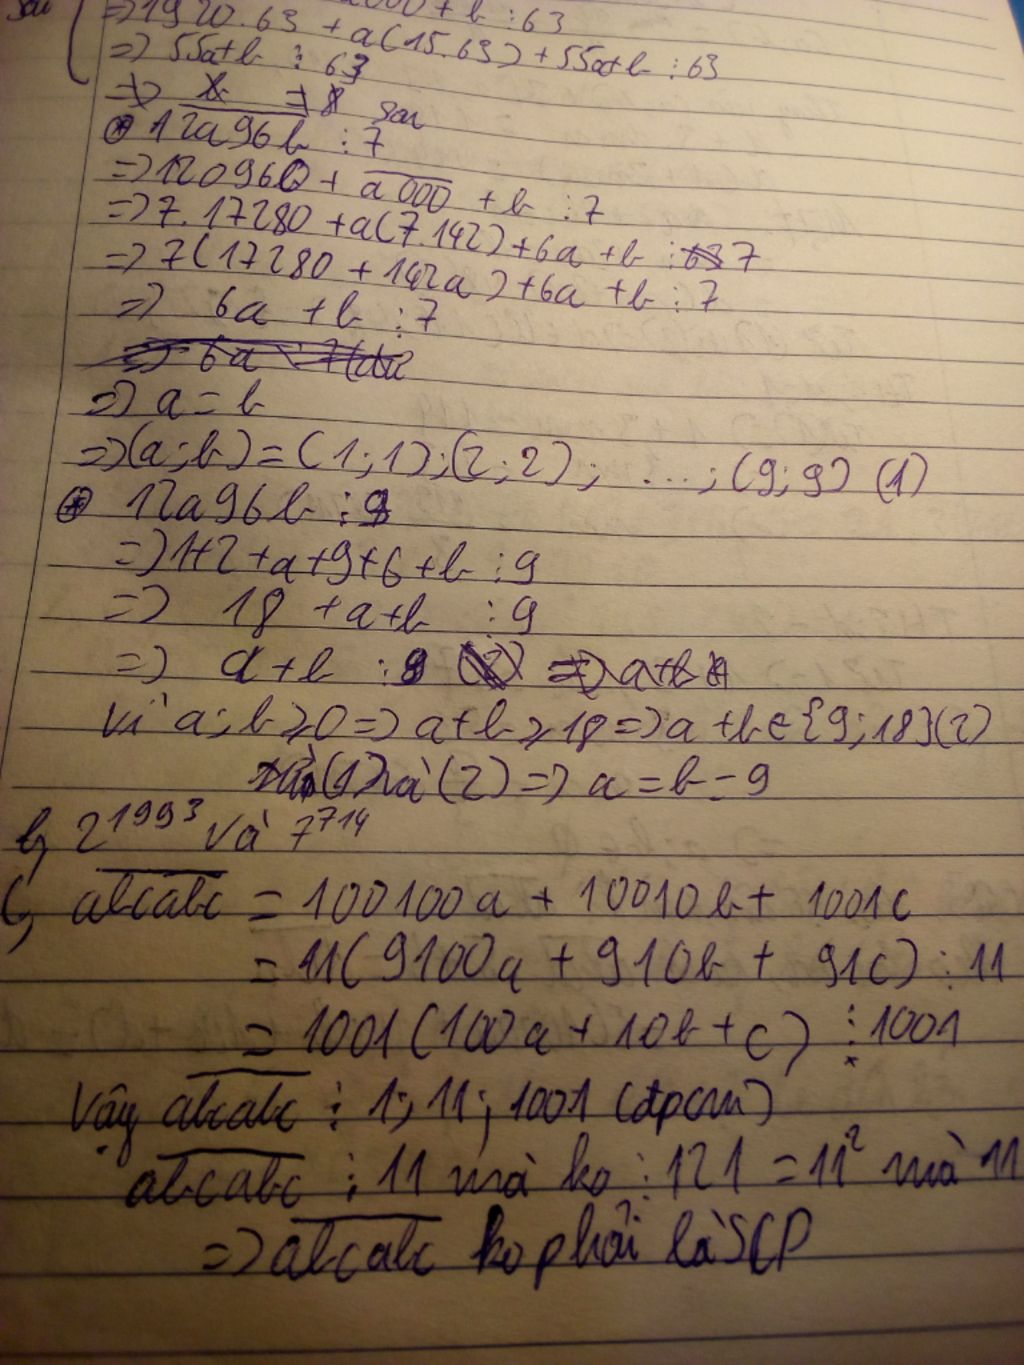 => 1920.63 + a(15.63) + 55a+b ⋮ 63
=> 55a+b ⋮ 63
* 12a96b ⋮ 7
=> 120960 + a000 + b ⋮ 7
=> 7.17280 + a(7.142) + 6a + b ⋮ 7
=> 7(17280 + 142a) + 6a + b ⋮ 7
=> 6a + b ⋮ 7
=> a = b
=> (a;b) = (1;1);(2;2); ...; (9;9) (1)
* 12a96b ⋮ 9
=> 1+2+a+9+6+b ⋮ 9
=> 18 + a+b ⋮ 9
=> a+b ⋮ 9
Vì a;b ≥ 0 => a+b ≥ 18 => a+b ∈ {9;18} (2)
(1) và (2) => a = b = 9
b, 2^1993 và 7^714
C, abcabc = 100100a + 10010b + 1001c
= 11(9100a + 910b + 91c) ⋮ 11
= 1001(100a + 10b + c) ⋮ 1001
Vậy abcabc ⋮ 1; 11; 1001 (đpcm)
abcabc ⋮ 11 mà ko ⋮ 121 = 11² mà 11
=> abcabc ko phải là SCP